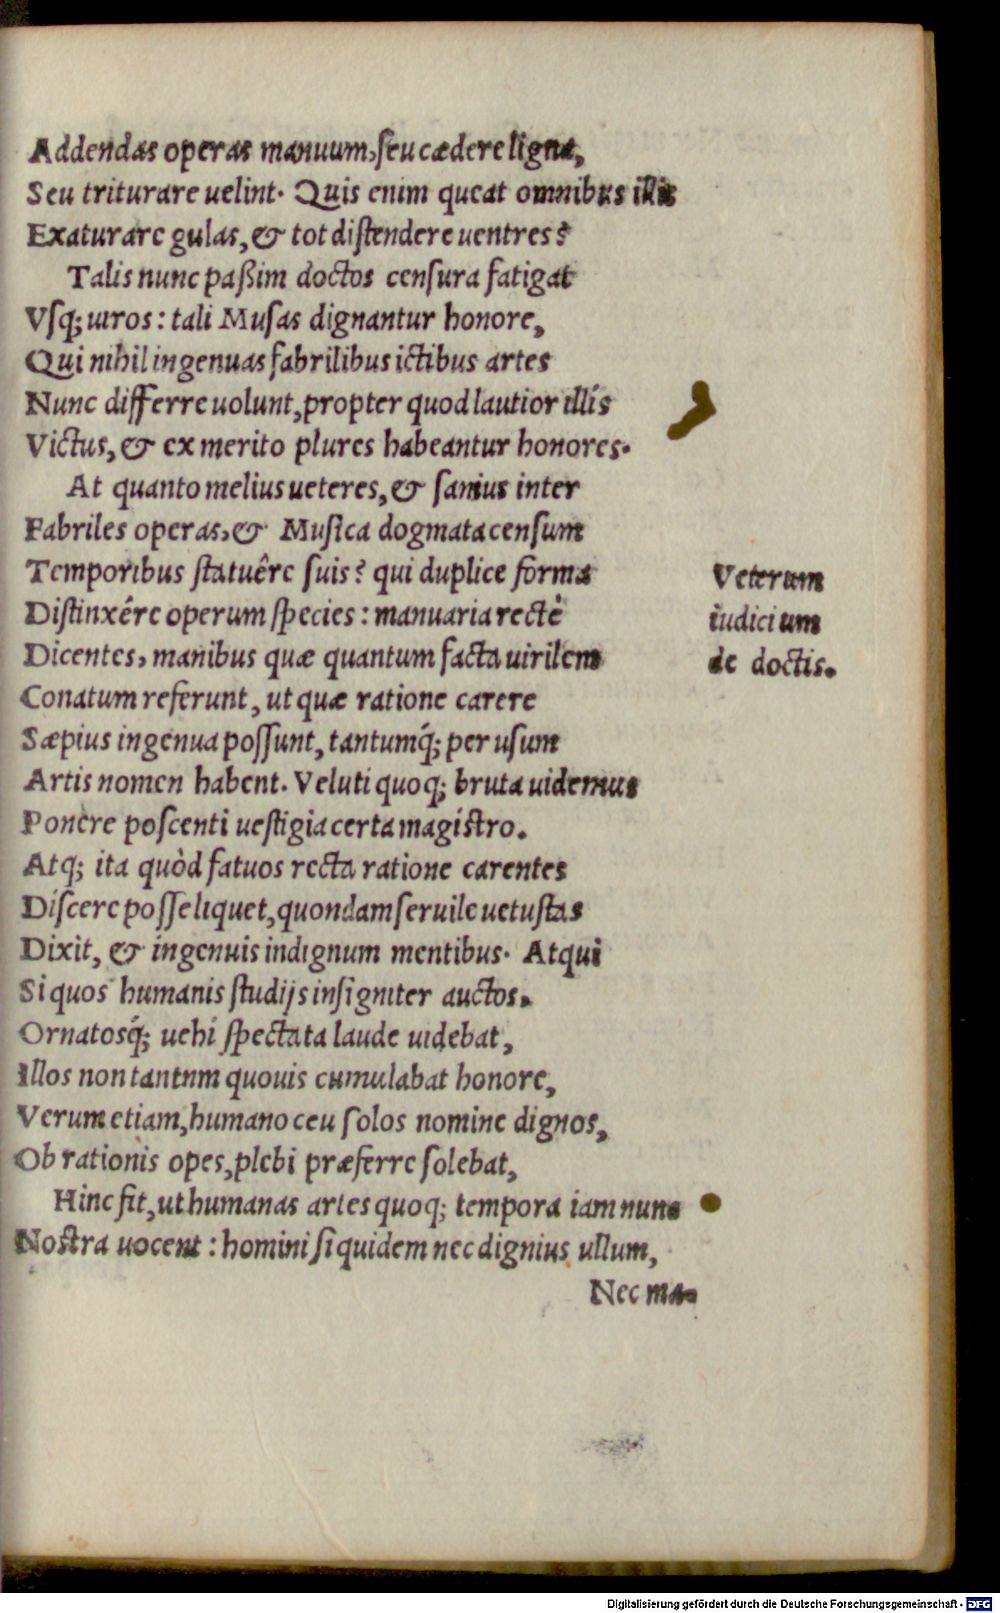 Addendas operas manuum, seu cædere ligna,
Seu triturare uelint. Quis enim queat omnibus illis
Exaturare gulas, & tot distendere uentres?
Talis nunc paßim doctos censura fatigat
Vsq; uiros: tali Musas dignantur honore,
Qui nihil ingenuas fabrilibus ictibus artes
Nunc differre uolunt, propter quod lautior illis
Victus, & ex merito plures habeantur honores.
At quanto melius ueteres, & sanius inter
Fabriles operas, & Musica dogmata censum
Temporibus statuêre suis? qui duplice forma
Distinxêre operum species: manuaria rectè
Dicentes, manibus quæ quantum facta uirilem
Conatum referunt, ut quæ ratione carere
Sæpius ingenua possunt, tantumq́; per usum
Artis nomen habent. Veluti quoq; bruta uidemus
Ponere poscenti uestigia certa magistro.
Atq; ita quòd fatuos recta ratione carentes
Discere posse liquet, quondam seruile uetustas
Dixit, & ingenuis indignum mentibus. Atqui
Si quos humanis studijs insigniter auctos,
Ornatosq́; uehi spectata laude uidebat,
Illos non tantum quouis cumulabat honore,
Verum etiam, humano ceu solos nomine dignos,
Ob rationis opes, plebi præferre solebat,
Hinc fit, ut humanas artes quoq; tempora iam nunc
Nostra uocent: homini siquidem nec dignius ullum,
Nec ma-
Veterum
iudicium
de doctis.
Digitalisierung gefördert durch die Deutsche Forschungsgemeinschaft - DFG